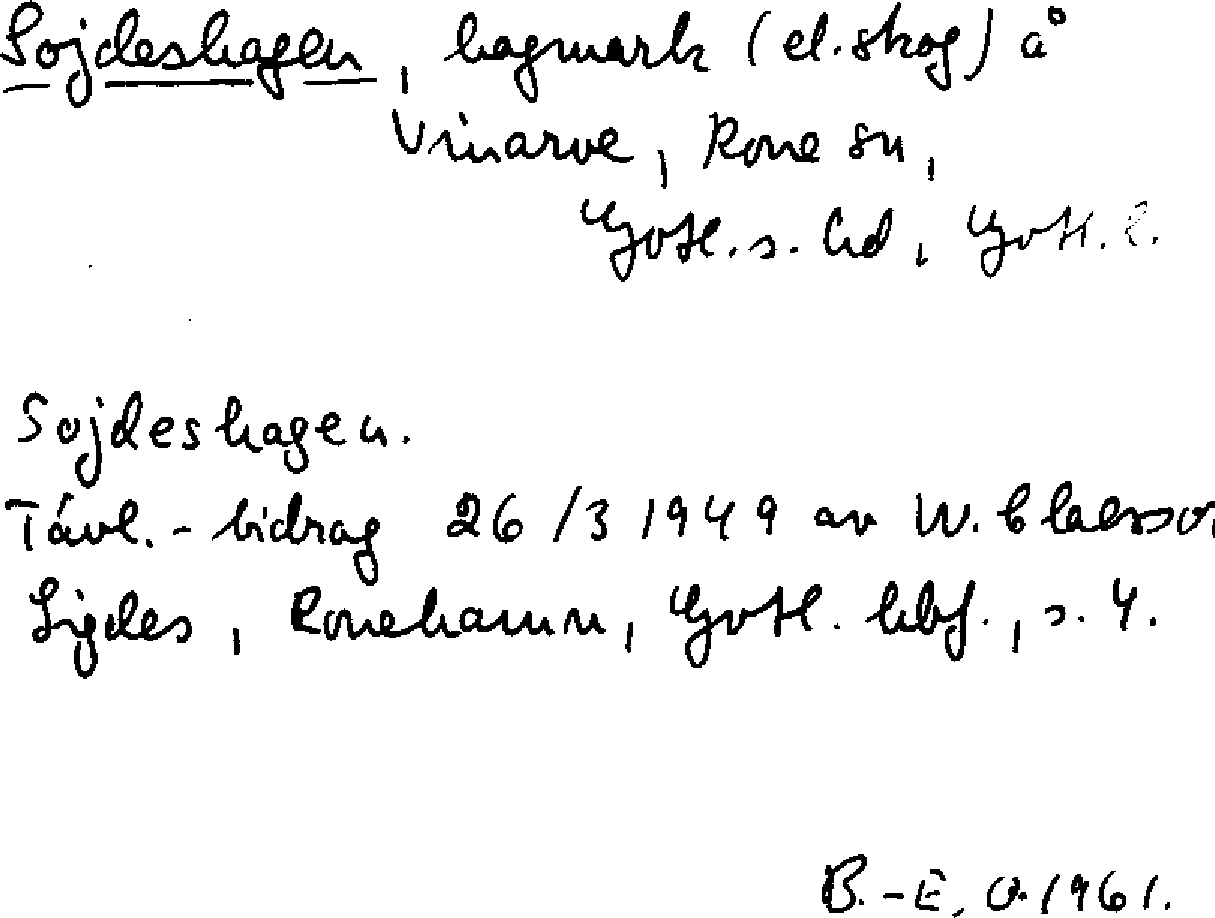 Sojdeshagen, hagmark (el. skog) å
Vinarve, Rone sn,
Gotl. s. hd, Gotl. l.
Sojdeshagen.
Tävl.-bidrag 26/3 1949 av W. Claesso
Sigdes, Ronehamn, Gotl. hbf., s. 4.
B.-E. O. 1961.